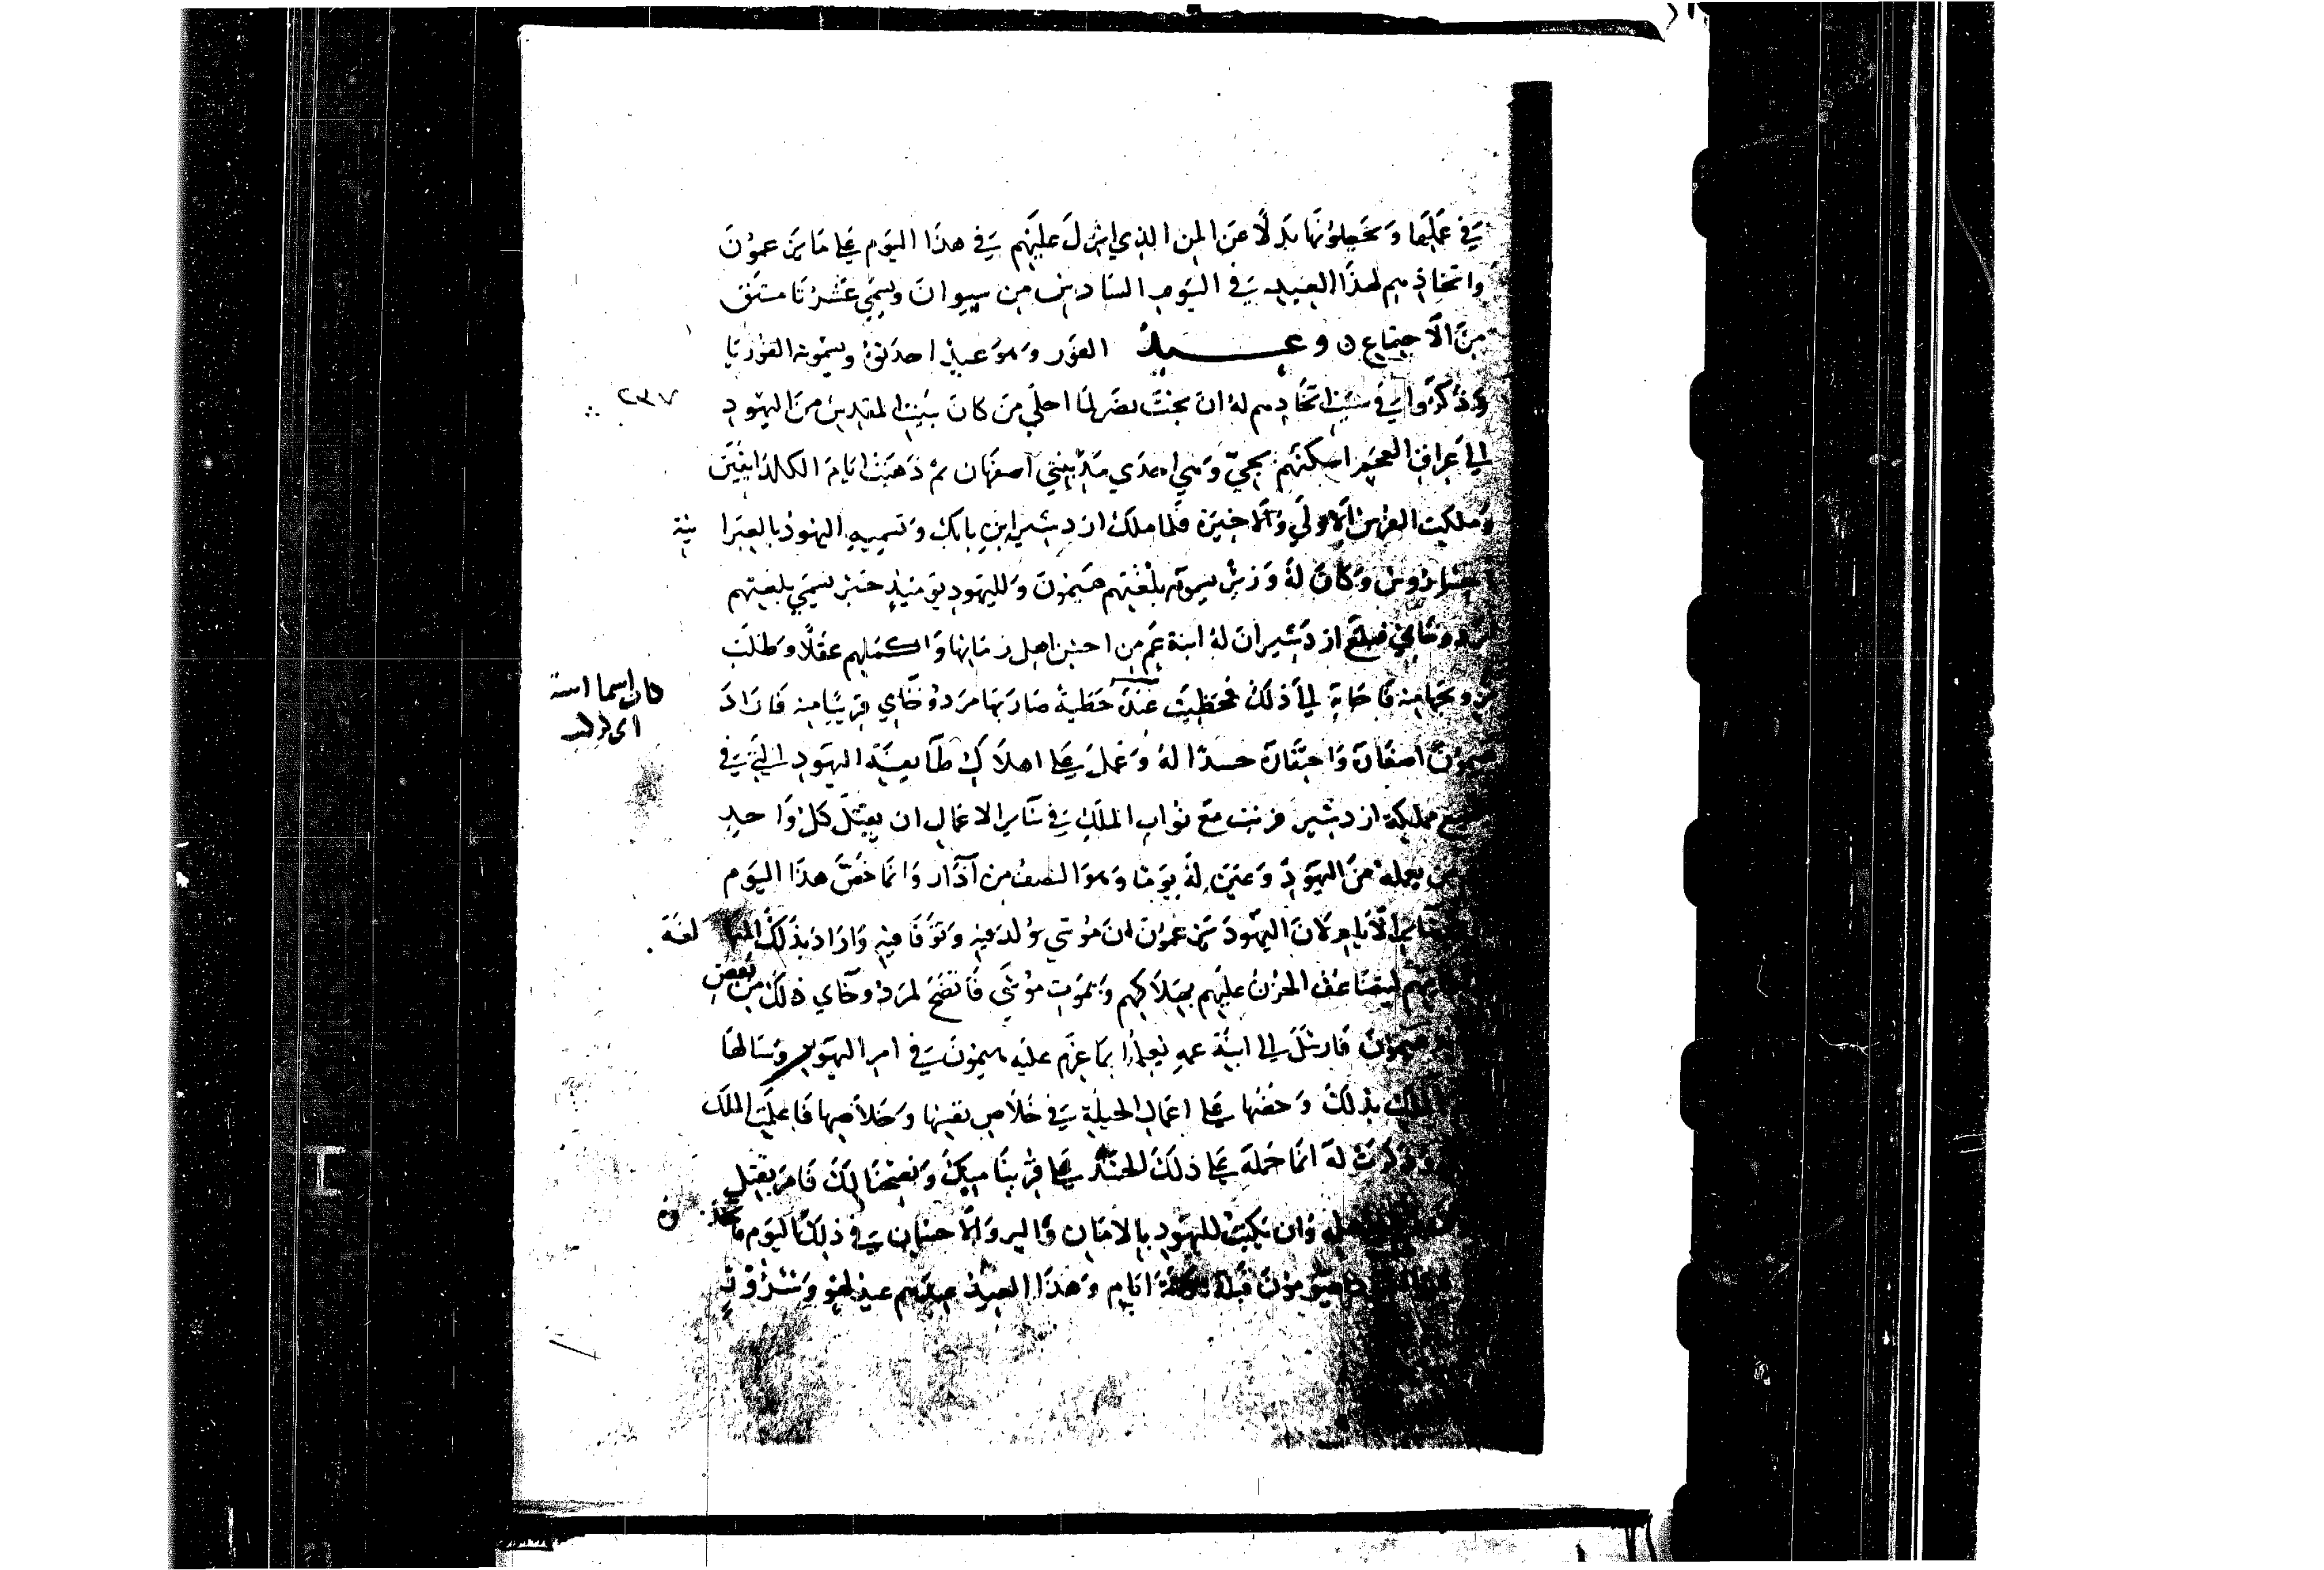 في عملها ويجعلونها بدلا عن المن الذي انزل عليهم في هذا اليوم علي ما يزعمون
واتخاذهم لهذا العيد في اليوم السادس من سيوان ويسمي عشرتا مشتق
من الاجتماع ن وعيد الفور وهو عيد احدثوه ويسمونه الفوريا
وذكروا في سبب اتخادهم له ان بخت نصر لما اجلي من كان ببيت المقدس من اليهود
الي عراق العجم اسكنهم بجي وهي احدي مدينتي اصفهان ثم ذهبت ايام الكلدانيين
وملكت الفرس الاولي والاخيرة فلما ملك اردشير ابن بابك وتسميه اليهود بالعبرا نية
وكان له وزير يسمونه بلغتهم هيمون ولليهود يومئذ حبر يسمي بلغتهم
مردوخاي فبلغ ازدشير ان له ابنة عم من احسن اهل زمانها واكملهم عقلا وطلب
تزويجها منه فاجابه الي ذلك فحظيت عنده حظية صار بها مردوخاي قريبا منه فاراد
هيمون اصغاره واحتقاره حسدا له وعمل علي اهلاك طايفة اليهود التي في
جميع مملكة ازدشير فرتب مع نواب الملك في ساير الاعمال ان يقتل كل واحد
من يعلمه من اليهود وعين له يوما وهو النصف من اذار وانما خص هذا اليوم
ساير الايام لان اليهود يزعمون ان موسي ولد فيه وتوفا فيه واراد بذلك المبا لغة
ليتضاعف الحزن عليهم بهلاكهم وبموت موسي فاتضح لمردوخاي ذلك من بعض
هيمون فارسل الي ابنة عمه يعلمها بما عزم عليه هيمون في امر اليهود وسالها
الملك بذلك وحضها علي اعمال الحيلة في خلاص نفسها وخلاصها فاعلمت الملك
وذكرت له انما حمله علي ذلك الحسد علي قربنا منك ونصحنا لك فامر بقتل
وان يكتب لليهود بالامان والبر والاحسان في ذلك اليوم فاتخذوه
يصومون قبله ثلاثة ايام وهذا العيد عندهم عيد لهو وسرور
٢٣٧
كان اسمها استر